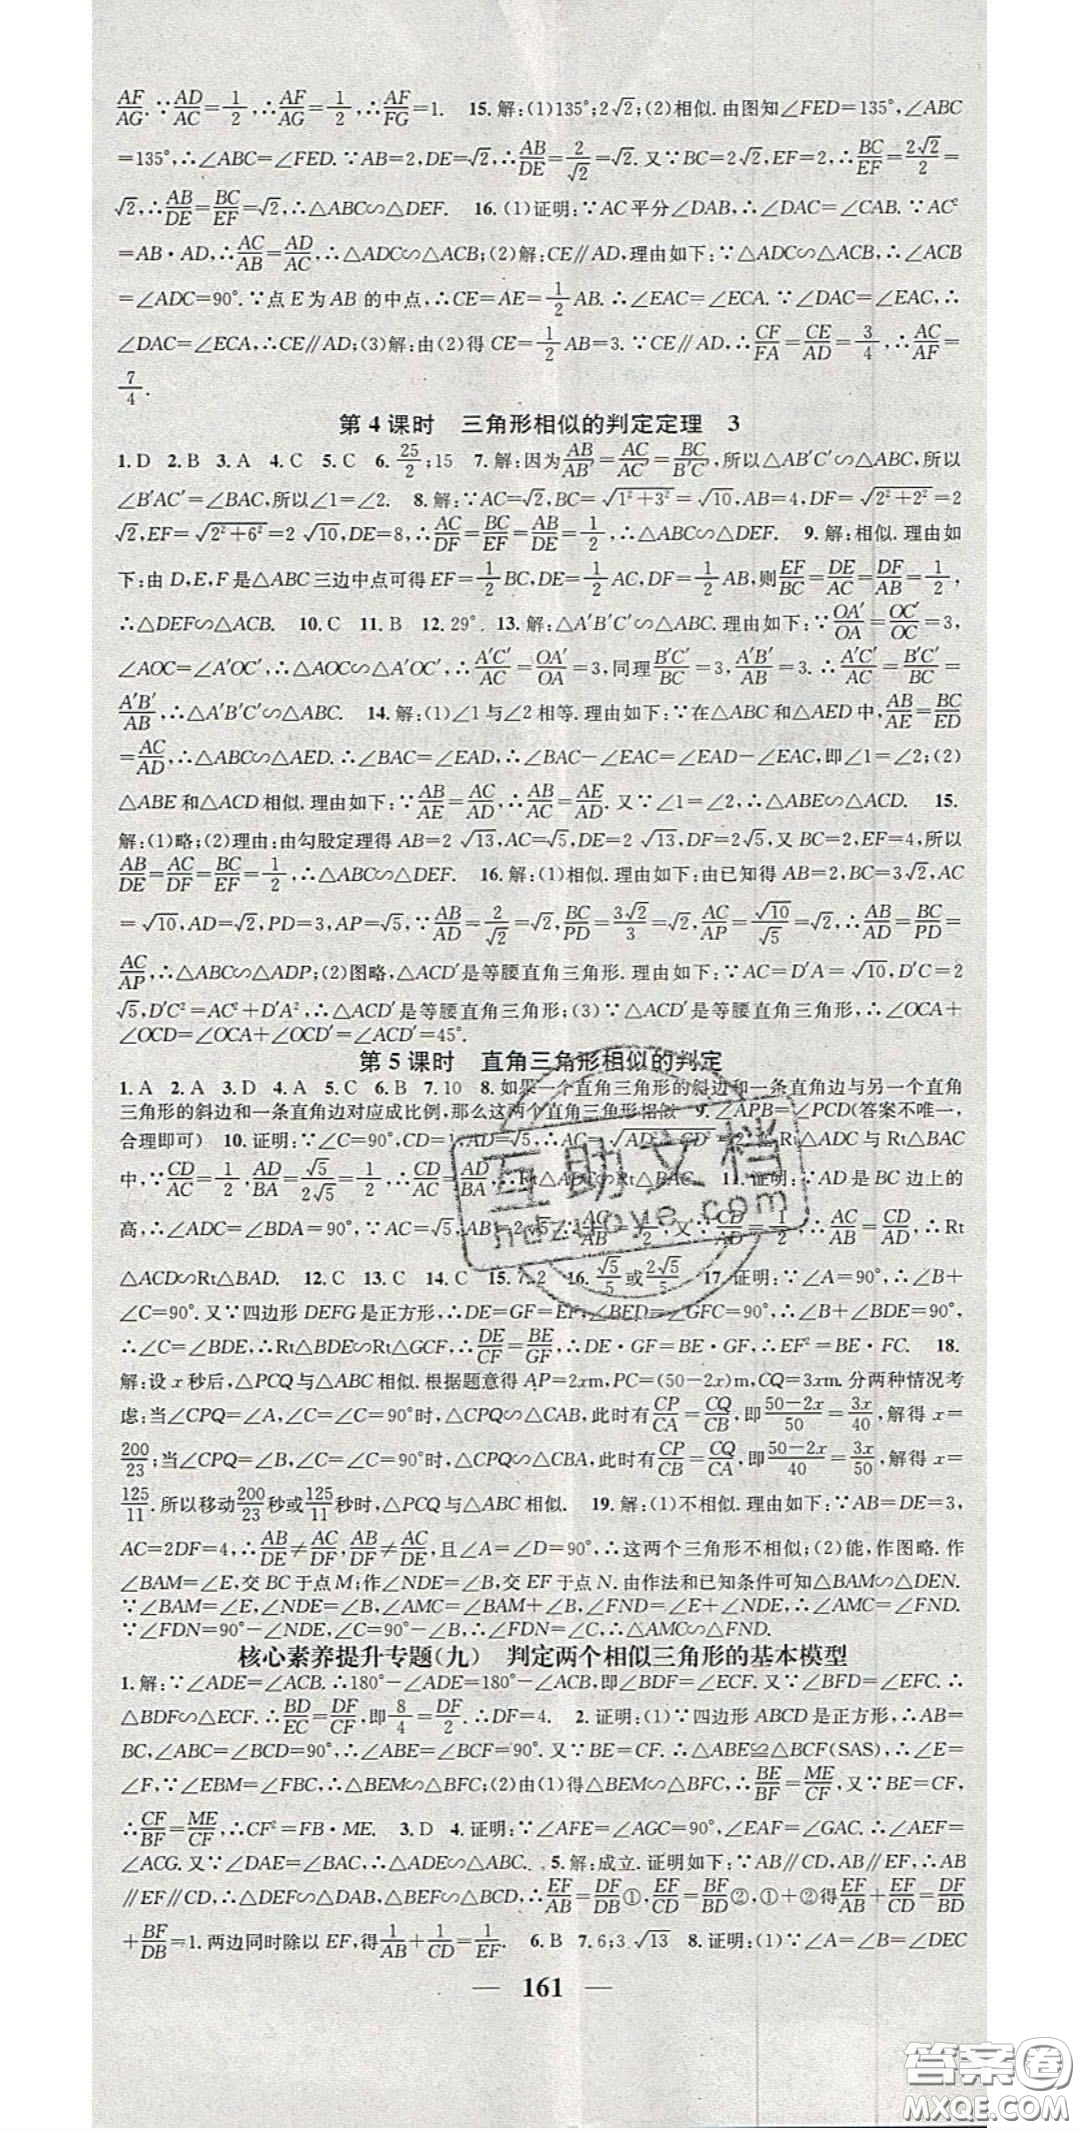 AF/AG.∵AD/AC=1/2,∴AF/AG=1/2,∴AF/FG=1. 15.解:(1)135°;2√2;(2)相似.由图知∠FED=135°,∠ABC
=135°,∴∠ABC=∠FED.∵AB=2,DE=√2,∴AB/DE=2/√2=√2.又∵BC=2√2,EF=2,∴BC/EF=2√2/2=
√2,∴AB/DE=BC/EF=√2,∴△ABC∽△DEF. 16.(1)证明:∵AC平分∠DAB,∴∠DAC=∠CAB.∵AC²
=AB·AD,∴AC/AB=AD/AC,∴△ADC∽△ACB;(2)解:CE∥AD.理由如下:∵△ADC∽△ACB,∴∠ACB
=∠ADC=90°.∵点E为AB的中点,∴CE=AE=1/2AB.∴∠EAC=∠ECA.∵∠DAC=∠EAC,∴
∠DAC=∠ECA,∴CE∥AD;(3)解:由(2)得CE=1/2AB=3.∵CE∥AD,∴CF/FA=CE/AD=3/4,∴AC/AF=
7/4.
第4课时 三角形相似的判定定理 3
1.D 2.B 3.A 4.C 5.C 6.25/2;15 7.解:因为AB/AB′=AC/AC′=BC/B′C′,所以△AB′C′∽△ABC,所以
∠B′AC′=∠BAC,所以∠1=∠2. 8.解:∵AC=√2,BC=√(1²+3²)=√10,AB=4,DF=√(2²+2²)=2
√2,EF=√(2²+6²)=2√10,DE=8,∴AC/DF=BC/EF=AB/DE=1/2,∴△ABC∽△DEF. 9.解:相似.理由如
下:由D,E,F是△ABC三边中点可得EF=1/2BC,DE=1/2AC,DF=1/2AB,则EF/BC=DE/AC=DF/AB=1/2,
∴△DEF∽△ACB. 10.C 11.B 12.29°. 13.解:△A′B′C′∽△ABC.理由如下:∵OA′/OA=OC′/OC=3,
∠AOC=∠A′OC′,∴△AOC∽△A′OC′,∴A′C′/AC=OA′/OA=3,同理B′C′/BC=3,A′B′/AB=3.∴A′C′/AC=B′C′/BC=
A′B′/AB,∴△A′B′C′∽△ABC. 14.解:(1)∠1与∠2相等.理由如下:∵在△ABC和△AED中,AB/AE=BC/ED
=AC/AD,∴△ABC∽△AED.∴∠BAC=∠EAD,∴∠BAC-∠EAC=∠EAD-∠EAC,即∠1=∠2;(2)
△ABE和△ACD相似.理由如下:∵AB/AE=AC/AD,∴AB/AC=AE/AD.又∵∠1=∠2,∴△ABE∽△ACD. 15.
解:(1)略;(2)理由:由勾股定理得AB=2√13,AC=√5,DE=2√13,DF=2√5,又BC=2,EF=4,所以
AB/DE=AC/DF=BC/EF=1/2,∴△ABC∽△DEF. 16.解:(1)相似.理由如下:由已知得AB=2,BC=3√2,AC
=√10,AD=√2,PD=3,AP=√5,∵AB/AD=2/√2=√2,BC/PD=3√2/3=√2,AC/AP=√10/√5=√2,∴AB/AD=BC/PD=
AC/AP,∴△ABC∽△ADP;(2)图略,△ACD′是等腰直角三角形.理由如下:∵AC=D′A=√10,D′C=2
√5,D′C²=AC²+D′A²,∴△ACD′是等腰直角三角形;(3)∵△ACD′是等腰直角三角形,∴∠OCA+
∠OCD=∠OCA+∠OCD′=∠ACD′=45°.
第5课时 直角三角形相似的判定
1.A 2.A 3.D 4.A 5.C 6.B 7.10 8.如果一个直角三角形的斜边和一条直角边与另一个直角
三角形的斜边和一条直角边对应成比例,那么这两个直角三角形相似 9.∠APB=∠PCD(答案不唯一,
合理即可) 10.证明:∵∠C=90°,CD=1,AD=√5,∴AC=√(AD²-CD²)=2.在Rt△ADC与Rt△BAC
中,∵CD/AC=1/2,AD/BA=√5/2√5=1/2,∴CD/AC=AD/BA,∴Rt△ADC∽Rt△BAC. 11.证明:∵AD是BC边上的
高,∴∠ADC=∠BDA=90°,∵AC=√5,AB=2√5,∴AC/AB=1/2,又∵CD/AD=1/2,∴AC/AB=CD/AD,∴Rt
△ACD∽Rt△BAD. 12.C 13.C 14.C 15.7.2 16.√5/5或2√5/5 17.证明:∵∠A=90°,∴∠B+
∠C=90°.又∵四边形DEFG是正方形,∴DE=GF=EF,∠BED=∠GFC=90°,∴∠B+∠BDE=90°,
∴∠C=∠BDE,∴Rt△BDE∽Rt△GCF,∴DE/CF=BE/GF,∴DE·GF=BE·GF,∴EF²=BE·FC. 18.
解:设x秒后,△PCQ与△ABC相似.根据题意得AP=2xm,PC=(50-2x)m,CQ=3xm.分两种情况考
虑:当∠CPQ=∠A,∠C=∠C=90°时,△CPQ∽△CAB,此时有CP/CA=CQ/CB,即(50-2x)/50=3x/40,解得x=
200/23;当∠CPQ=∠B,∠C=∠C=90°时,△CPQ∽△CBA,此时有CP/CB=CQ/CA,即(50-2x)/40=3x/50,解得x=
125/11.所以移动200/23秒或125/11秒时,△PCQ与△ABC相似. 19.解:(1)不相似.理由如下:∵AB=DE=3,
AC=2DF=4,∴AB/DE≠AC/DF,AB/DF≠AC/DE,且∠A=∠D=90°,∴这两个三角形不相似;(2)能,作图略.作
∠BAM=∠E,交BC于点M;作∠NDE=∠B,交EF于点N.由作法和已知条件可知△BAM∽△DEN.
∵∠BAM=∠E,∠NDE=∠B,∠AMC=∠BAM+∠B,∠FND=∠E+∠NDE,∴∠AMC=∠FND.
∵∠FDN=90°-∠NDE,∠C=90°-∠B,∴∠FDN=∠C,∴△AMC∽△FND.
核心素养提升专题(九) 判定两个相似三角形的基本模型
1.解:∵∠ADE=∠ACB,∴180°-∠ADE=180°-∠ACB,即∠BDF=∠ECF.又∵∠BFD=∠EFC.∴
△BDF∽△ECF.∴BD/EC=DF/CF,即8/4=DF/2.∴DF=4. 2.证明:(1)∵四边形ABCD是正方形,∴AB=
BC,∠ABC=∠BCD=90°,∴∠ABE=∠BCF=90°.又∵BE=CF.∴△ABE≌△BCF(SAS),∴∠E=
∠F,∵∠EBM=∠FBC,∴△BEM∽△BFC;(2)由(1)得△BEM∽△BFC,∴BE/BF=ME/CF,又∵BE=CF,
∴CF/BF=ME/CF,∴CF²=FB·ME. 3.D 4.证明:∵∠AFE=∠AGC=90°,∠EAF=∠GAC.∴∠AEF=
∠ACG.又∵∠DAE=∠BAC,∴△ADE∽△ABC. 5.解:成立.证明如下:∵AB∥CD,AB∥EF,∴AB
∥EF∥CD,∴△DEF∽△DAB,△BEF∽△BCD,∴EF/AB=DF/DB①,EF/CD=BF/BD②,①+②得EF/AB+EF/CD=DF/BD
+BF/DB=1.两边同时除以EF,得1/AB+1/CD=1/EF. 6.B 7.6;3√13 8.证明:(1)∵∠A=∠B=∠DEC
— 161 —
互助文档
hdzuoye.com
答案卷
MXQE.COM